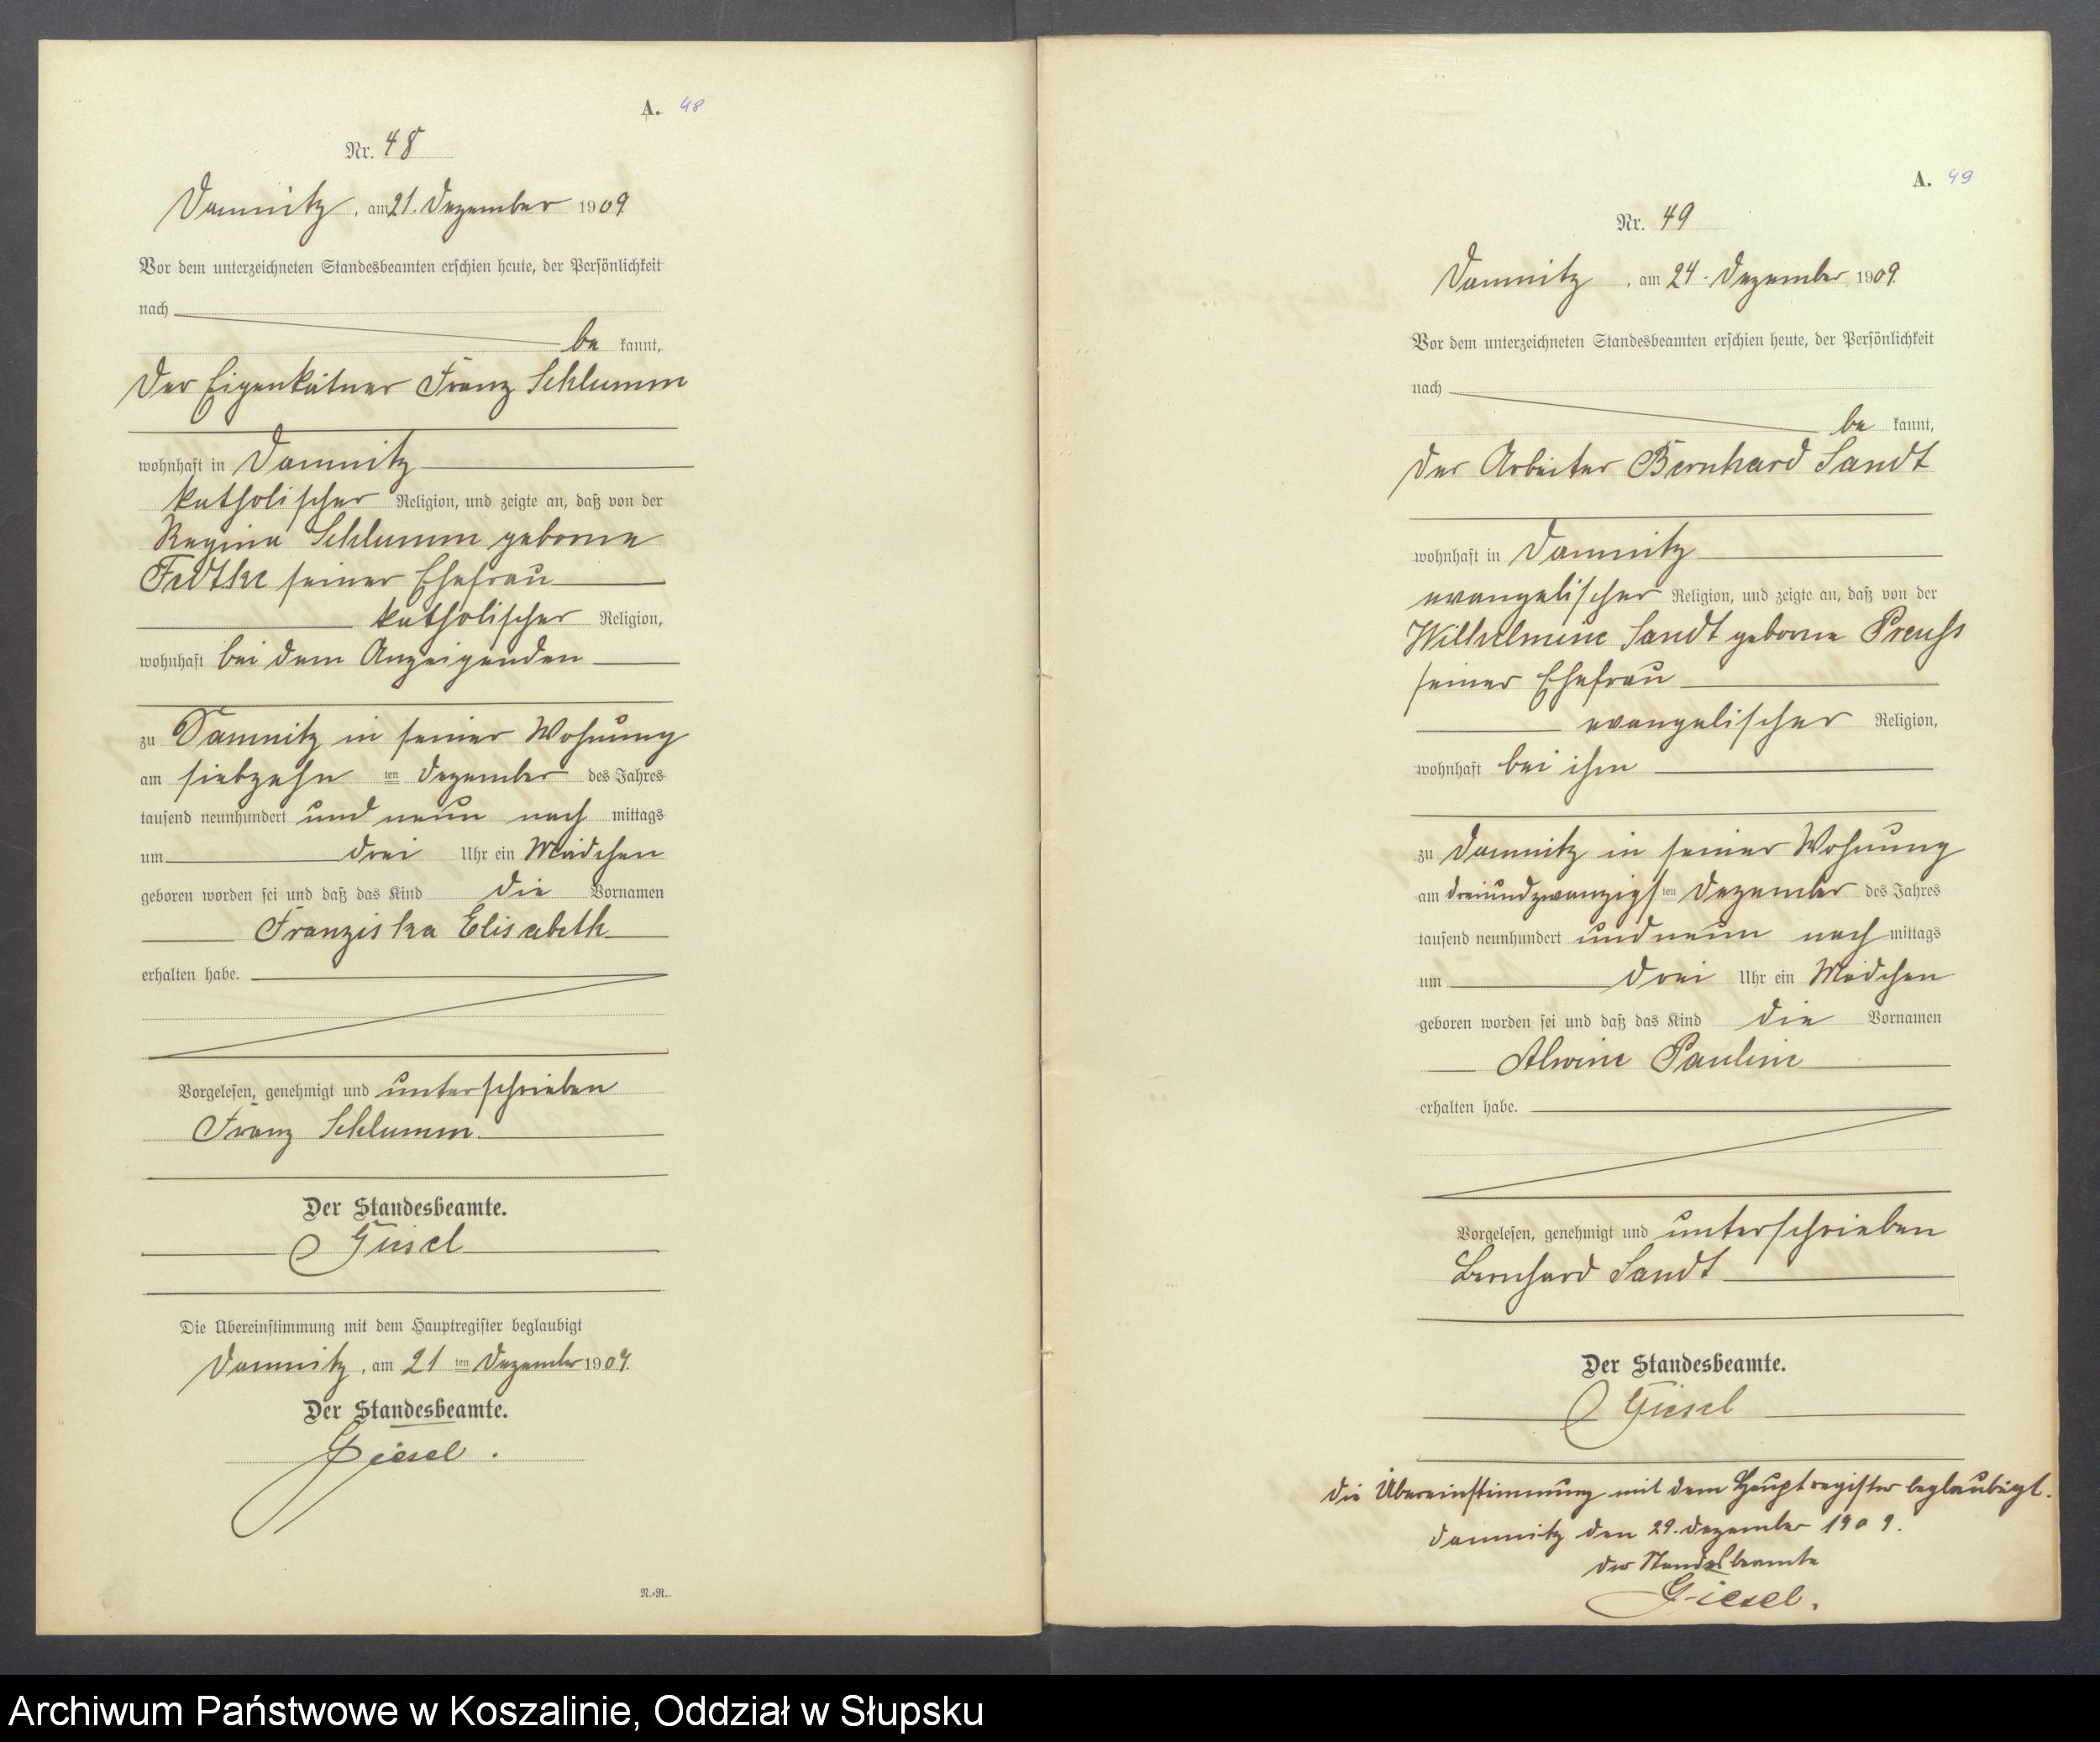 A. 48
Nr. 48
Damnitz, am 21. Dezember 1909
Vor dem unterzeichneten Standesbeamten erschien heute, der Persönlichkeit
nach
be kannt,
der Eigenkätner Franz Schlumm
wohnhaft in Damnitz
katholischer Religion, und zeigte an, daß von der
Regina Schlumm geborne
Fedtke seiner Ehefrau
katholischer Religion,
wohnhaft bei dem Anzeigenden
zu Damnitz in seiner Wohnung
am siebzehn ten Dezember des Jahres
tausend neunhundert und neun nach mittags
um drei Uhr ein Mädchen
geboren worden sei und daß das Kind die Vornamen
Franziska Elisabeth
erhalten habe.
Vorgelesen, genehmigt und unterschrieben
Franz Schlumm
Der Standesbeamte.
Giesel
Die Übereinstimmung mit dem Hauptregister beglaubigt
Damnitz, am 21 ten Dezember 1909.
Der Standesbeamte.
Giesel.
N.-R.
A. 49
Nr. 49
Damnitz, am 24. Dezember 1909
Vor dem unterzeichneten Standesbeamten erschien heute, der Persönlichkeit
nach
be kannt,
der Arbeiter Bernhard Sandt
wohnhaft in Damnitz
evangelischer Religion, und zeigte an, daß von der
Wilhelmine Sandt geborne Preuß
seiner Ehefrau
evangelischer Religion,
wohnhaft bei ihm
zu Damnitz in seiner Wohnung
am dreiundzwanzigs ten Dezember des Jahres
tausend neunhundert und neun nach mittags
um drei Uhr ein Mädchen
geboren worden sei und daß das Kind die Vornamen
Alwine Pauline
erhalten habe.
Vorgelesen, genehmigt und unterschrieben
Bernhard Sandt
Der Standesbeamte.
Giesel
Die Übereinstimmung mit dem Hauptregister beglaubigt.
Damnitz den 29. Dezember 1909.
Der Standesbeamte
Giesel.
Archiwum Państwowe w Koszalinie, Oddział w Słupsku